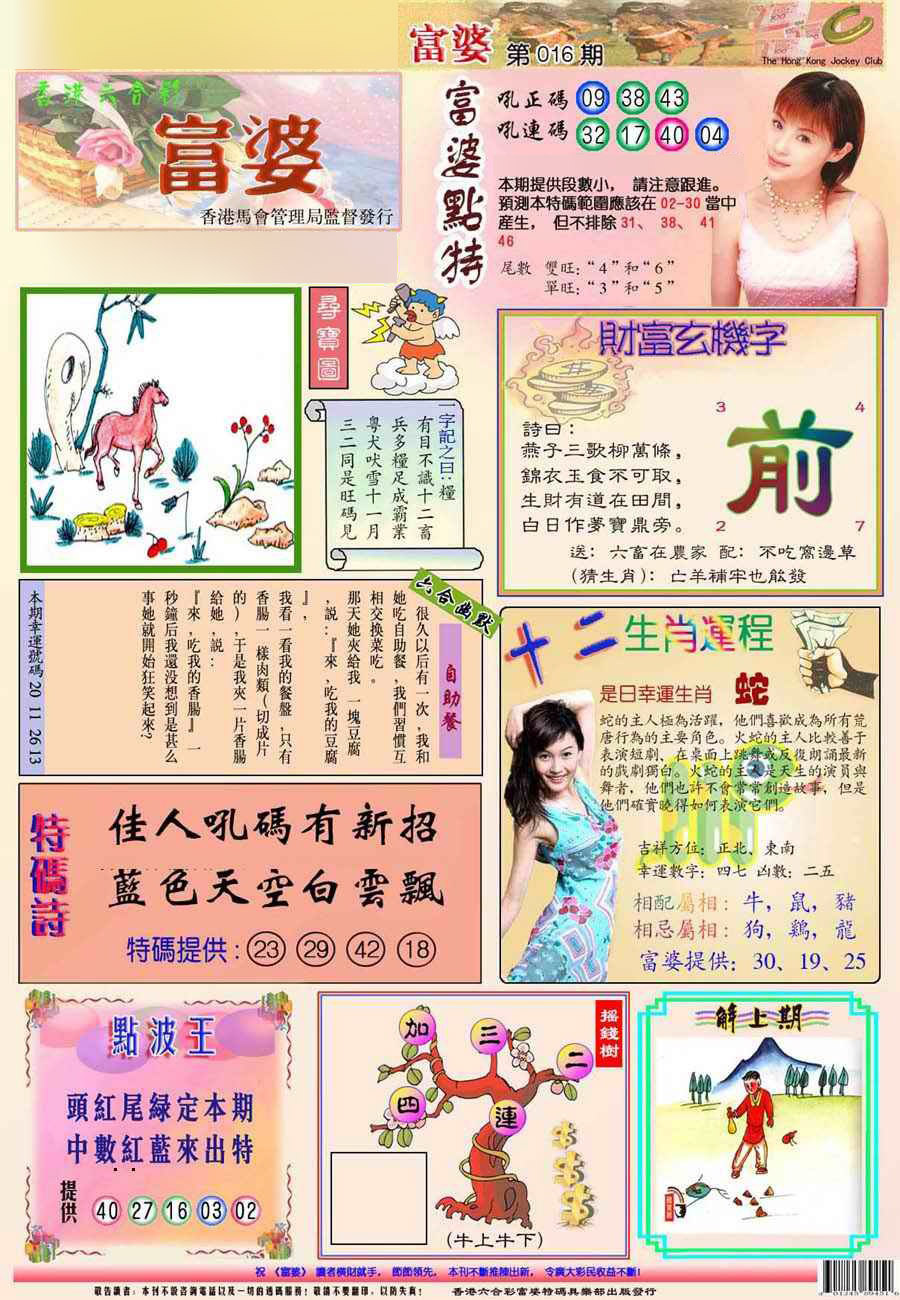 富婆 第016期
The Hong Kong Jockey Club
香港六合彩
富婆
香港馬會管理局監督發行
富婆點特
吼正碼 09 38 43
吼連碼 32 17 40 04
本期提供段數小, 請注意跟進。
預測本特碼範圍應該在 02-30 當中
産生, 但不排除 31、 38、 41
46
尾數 雙旺:“4”和“6”
單旺:“3”和“5”
尋寶圖
一字記之曰:糧
有目不識十二畜
兵多糧足成霸業
粵犬吠雪十一月
三二同是旺碼見
財富玄機字
詩曰:
燕子三歌柳萬條,
錦衣玉食不可取,
生財有道在田間,
白日作夢寶鼎旁。
3 4
前
2 7
送: 六畜在農家 配: 不吃窩邊草
(猜生肖): 亡羊補牢也飲發
六合幽默
自助餐
很久以后有一次,我和
她吃自助餐,我們習慣互
相交換菜吃。
那天她夾給我一塊豆腐
,説:『來,吃我的豆腐
』,
我看一看我的餐盤,只有
香腸一樣肉類(切成片
的),于是我夾一片香腸
給她,説:
『來,吃我的香腸』一
秒鐘后我還没想到是甚么
事她就開始狂笑起來?
本期幸運號碼 20 11 26 13
十二生肖運程
是日幸運生肖 蛇
蛇的主人極為活躍, 他們喜歡成為所有荒
唐行為的主要角色。火蛇的主人比較善于
表演短劇、在桌面上跳舞或反復朗誦最新
的戲劇獨白。火蛇的主人是天生的演員與
舞者, 他們也許不會常常創造故事, 但是
他們確實曉得如何表演它們。
吉祥方位: 正北、東南
幸運數字: 四七 凶數: 二五
相配屬相: 牛, 鼠, 豬
相忌屬相: 狗, 鷄, 龍
富婆提供: 30、19、25
特碼詩
佳人吼碼有新招
藍色天空白雲飄
特碼提供: 23 29 42 18
點波王
頭紅尾綠定本期
中數紅藍來出特
提供 40 27 16 03 02
搖錢樹
加 三 二
四 連
(牛上牛下)
解上期
祝 《富婆》 讀者橫財就手, 節節領先, 本刊不斷推陳出新, 令廣大彩民收益不斷!
敬告讀者: 本刊不設咨詢電話以及一切的透碼服務! 敬請不要翻印, 以防失真! 香港六合彩富婆特碼俱樂部出版發行